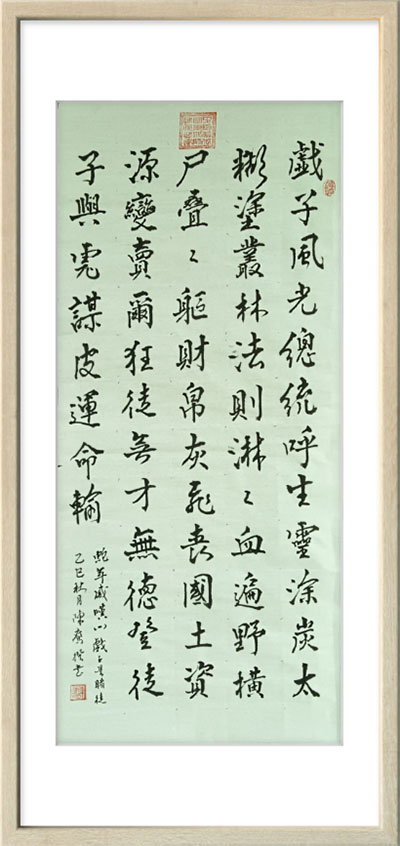 戲子風光總統呼生靈涂炭太
糊塗叢林法則淋〻血遍野橫
尸疊〻軀財帛灰飛喪國土資
源變賣爾狂徒无才無德登徒
子與虎謀皮運命輪
蛇年感嘆小戲子賭徒
乙巳秋月陳書